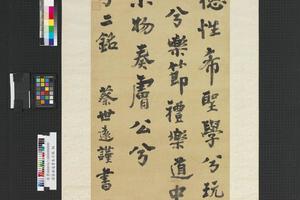 德性希聖學兮玩
兮樂節禮樂道中
物奏膚公兮
二銘
蔡世遠謹書